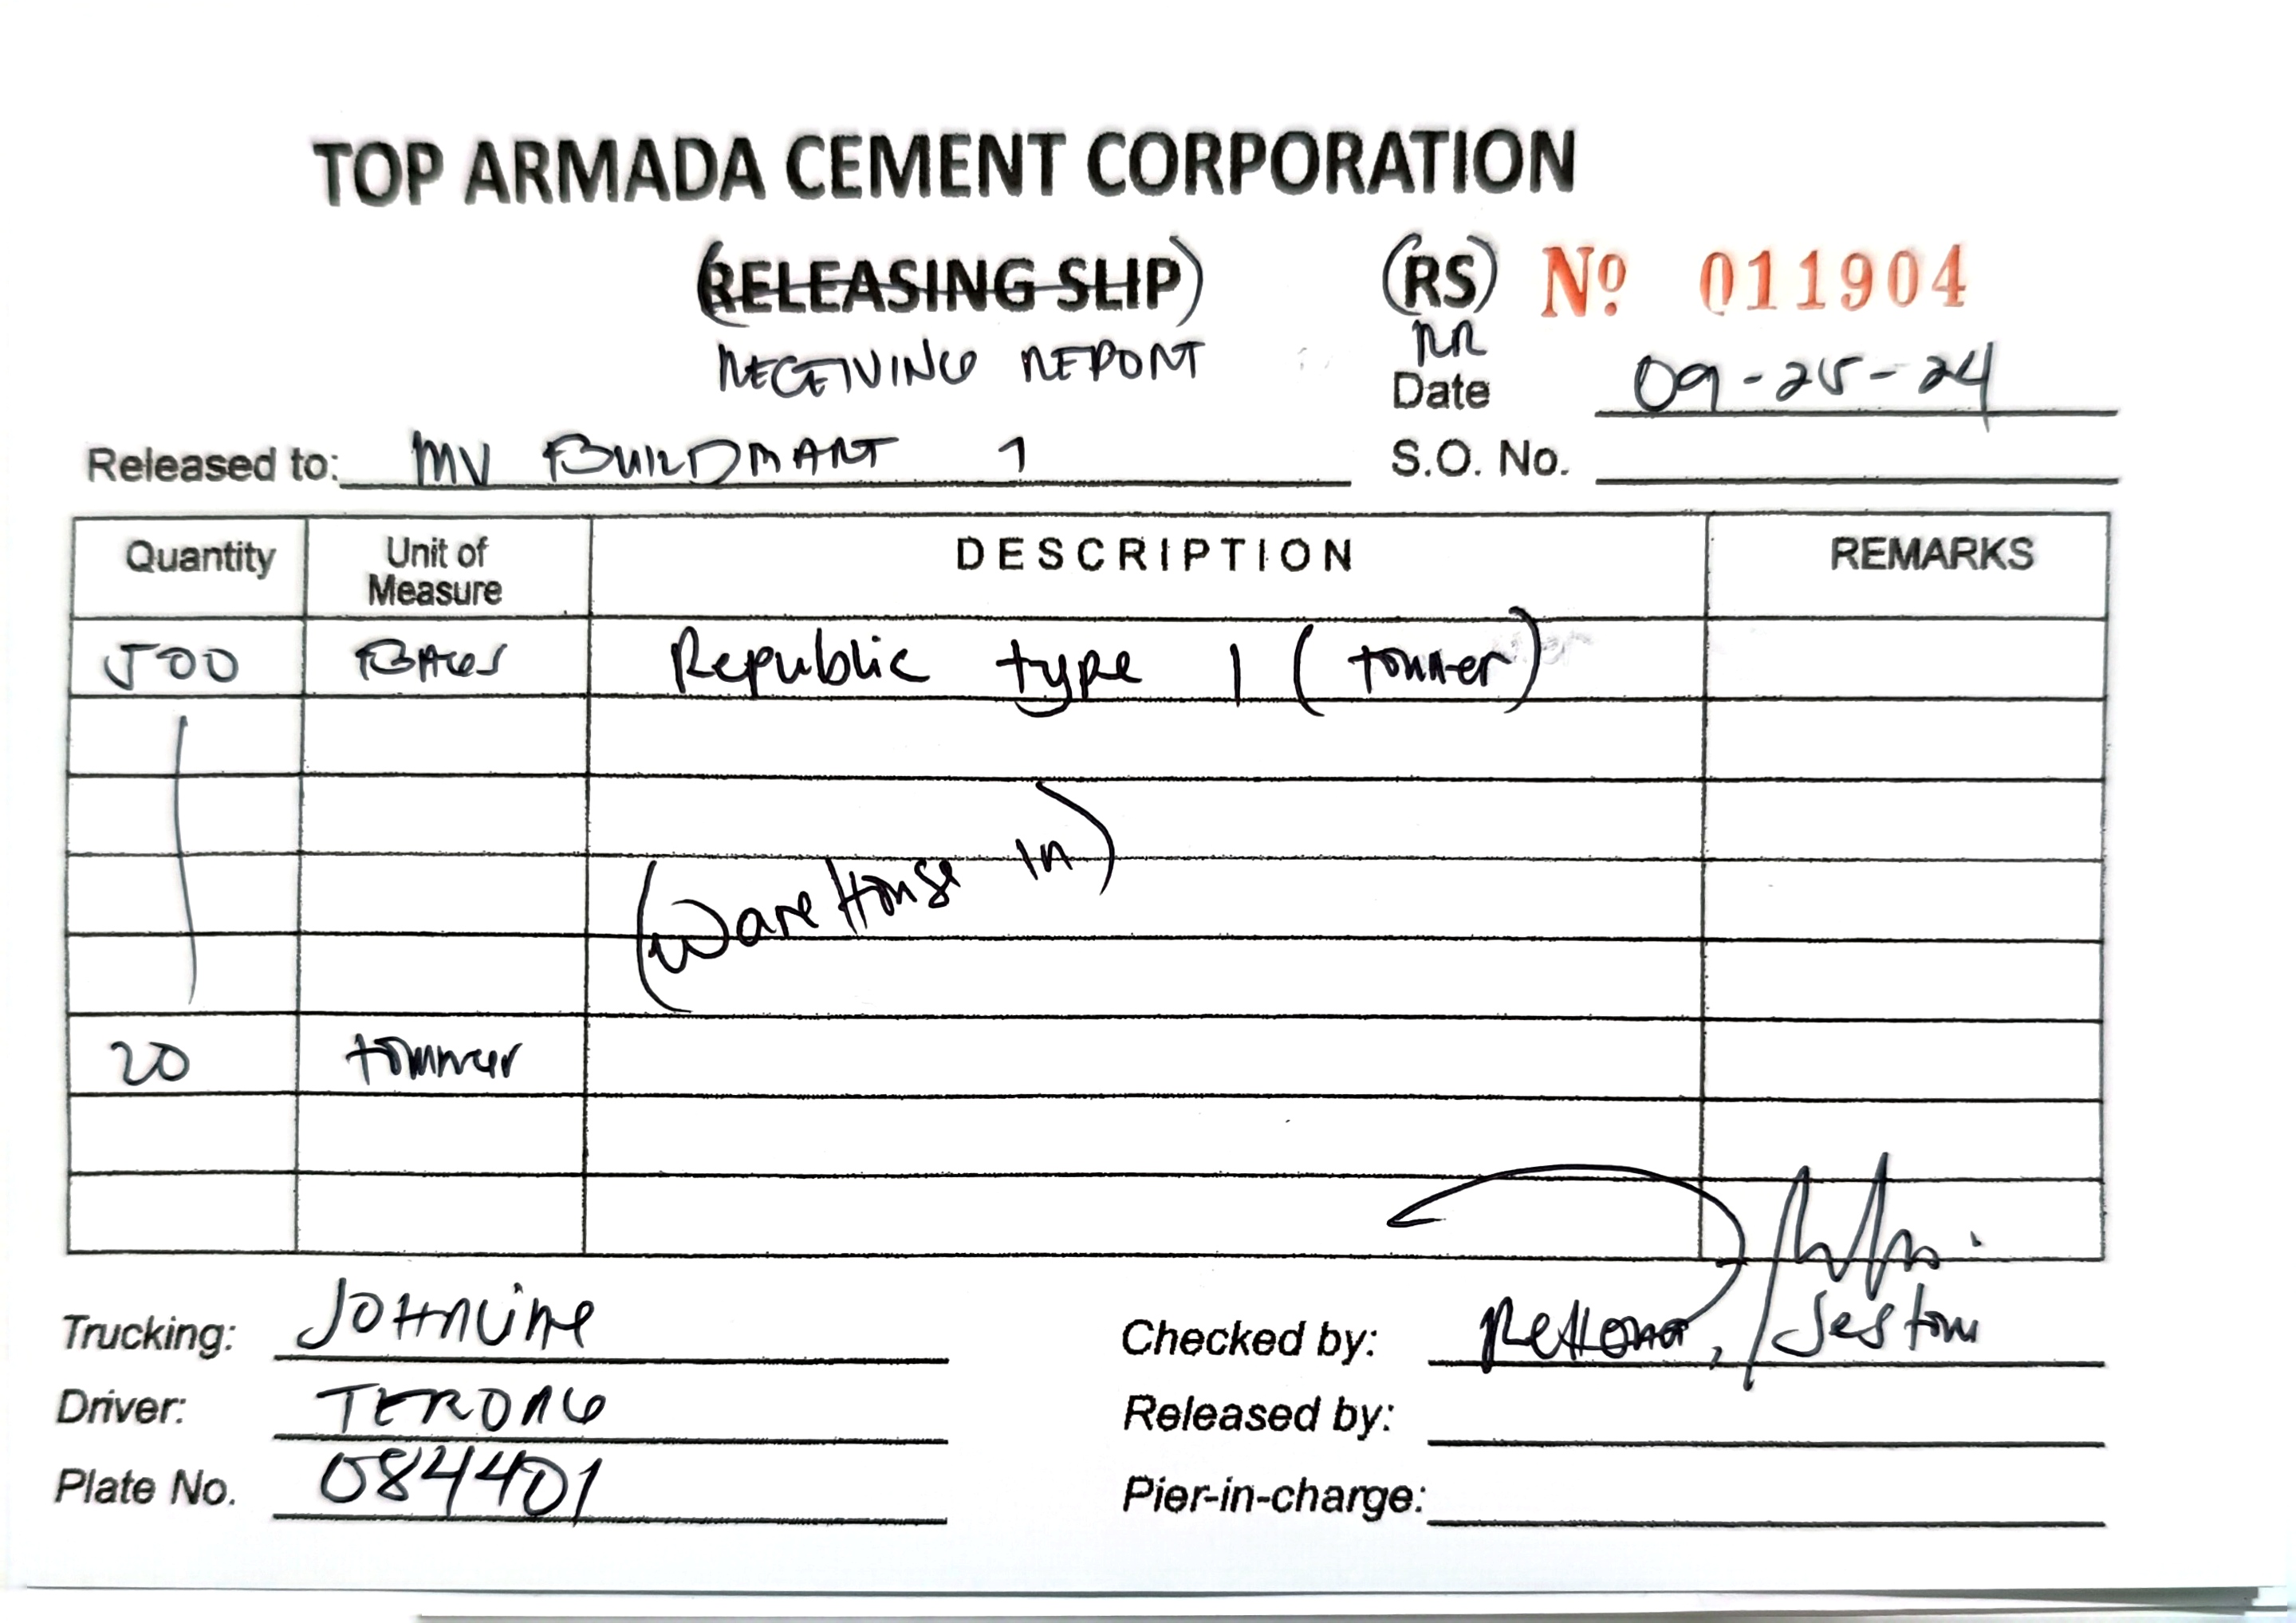 TOP ARMADA CEMENT CORPORATION
(RELEASING SLIP) (RS) Nº 011904
RECEIVING REPORT RR
Date 09-25-24
Released to: MV BUILDMART 1 S.O. No.
Quantity Unit of Measure DESCRIPTION REMARKS
500 BAGS Republic type 1 (tonner)
(WareHouse In)
20 tonner
Trucking: JOHNVINE Checked by: Seston
Driver: TERONG Released by:
Plate No. 084401 Pier-in-charge: